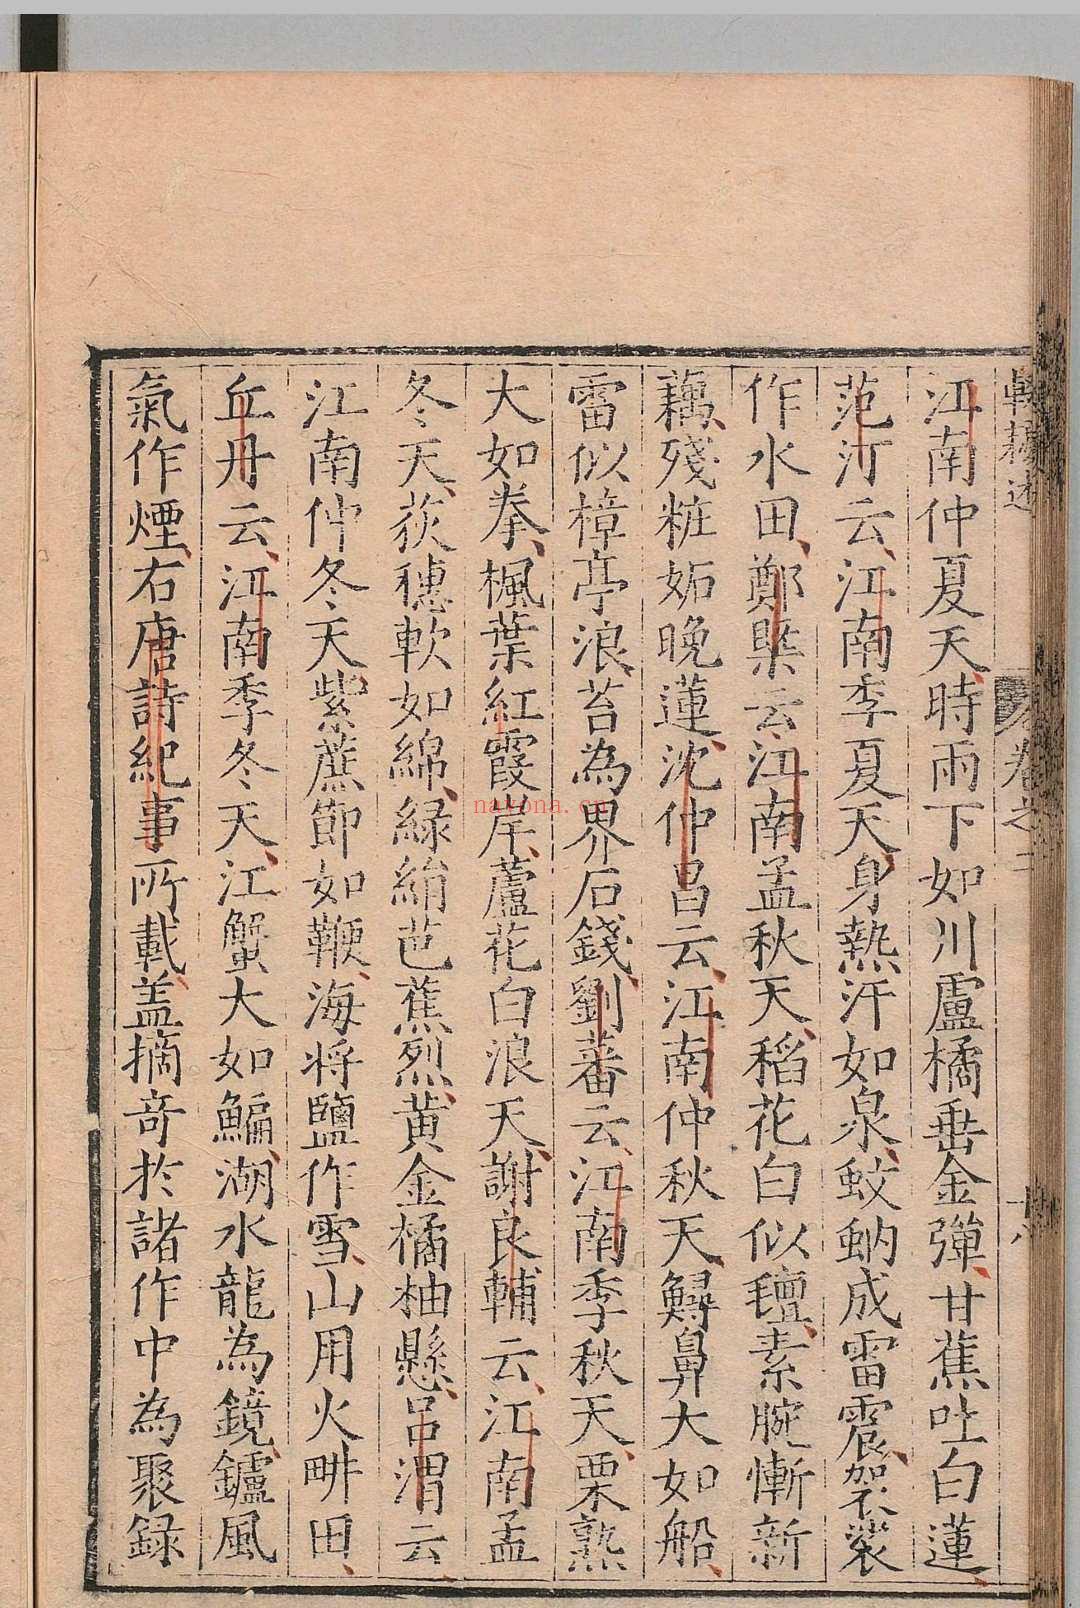 江南仲夏天時雨下如川盧橘垂金彈甘蕉吐白蓮
范汀云江南季夏天身熱汗如泉蚊蚋成雷震袈裟
作水田鄭槩云江南孟秋天稻花白似氊素腕慚新
藕殘粧妬晚蓮沈仲昌云江南仲秋天鱘鼻大如船
雷似樟亭浪苔為界石錢劉蕃云江南季秋天栗熟
大如拳楓葉紅霞岸蘆花白浪天謝良輔云江南孟
冬天荻穗軟如綿綠絹芭蕉烈黃金橘柚懸呂渭云
江南仲冬天紫蔗節如鞭海將鹽作雪山用火畊田
丘丹云江南季冬天江蟹大如鯿湖水龍為鏡鑪風
氣作煙右唐詩紀事所載盖摘竒於諸作中為聚録